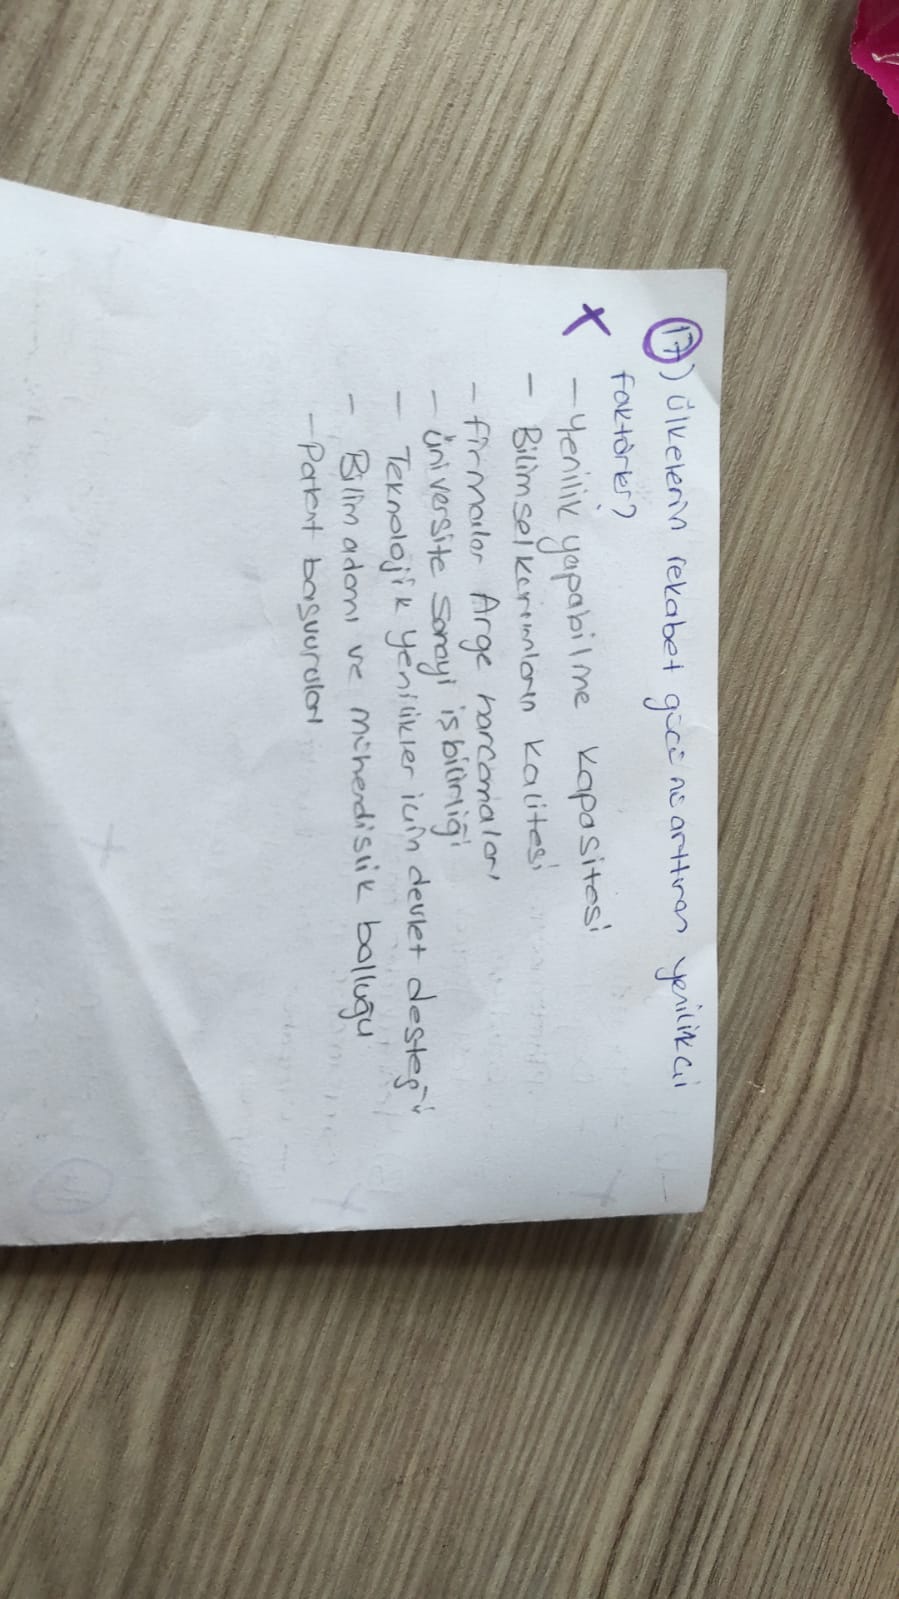 17) Ülkelerin rekabet gücünü arttıran yenilikçi
faktörler?
X
- Yenilik yapabilme kapasitesi
- Bilimsel kurumların kalitesi
- firmalar Arge harcamaları
- üniversite sanayi işbilirliği
- Teknolojik Yenilikler için devlet desteği
- Bilim adamı ve mühendislik bolluğu
- Patent başvuruları